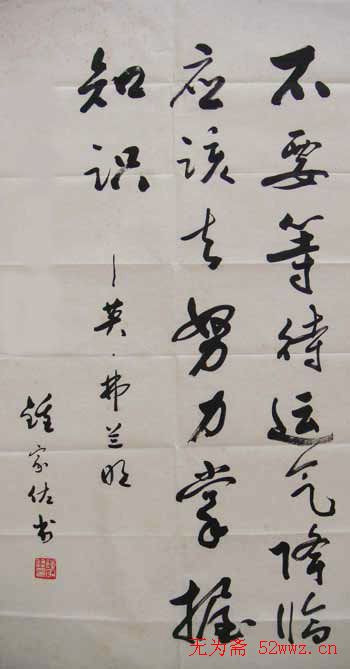 不要等待运气降临
应该去努力掌握
知识
—英·弗兰明
钟家佐书
无为斋 52wwz.cn